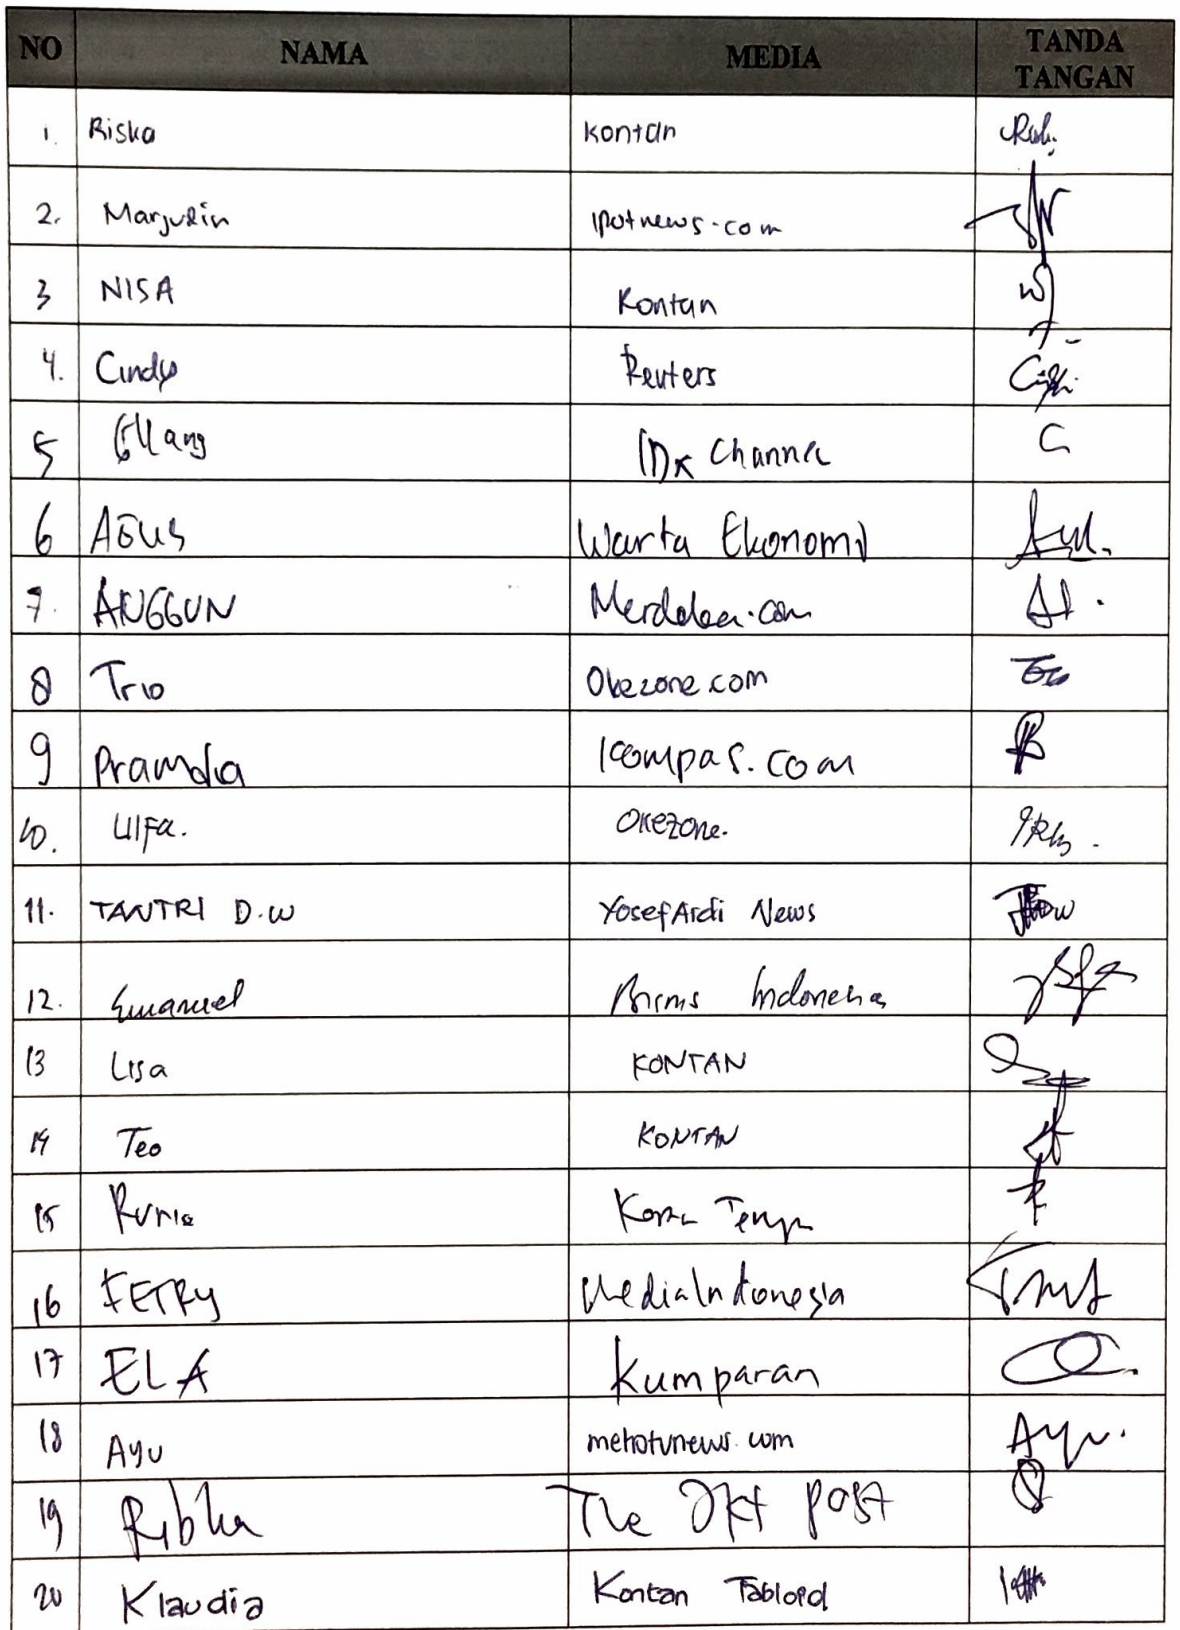 NO NAMA MEDIA TANDA TANGAN
1. Riska Kontan
2. Marjudin ipotnews.com
3 NISA Kontan
4. Cindy Reuters
5 Gilang IDX Channel
6 AGUS Warta Ekonomi
7. ANGGUN Merdeka.com
8 Trio Okezone.com
9 Pramdia kompas.com
10. Ulfa. Okezone.
11. TANTRI D.W YosefArdi News
12. Emanuel Bisnis Indonesia
13 Lisa KONTAN
14 Teo KONTAN
15 Koran Tempo
16 FETRY MediaIndonesia
17 ELA Kumparan
18 Ayu metrotvnews.com Ayu.
19 Ribka The Jkt post
20 Klaudia Kontan Tabloid